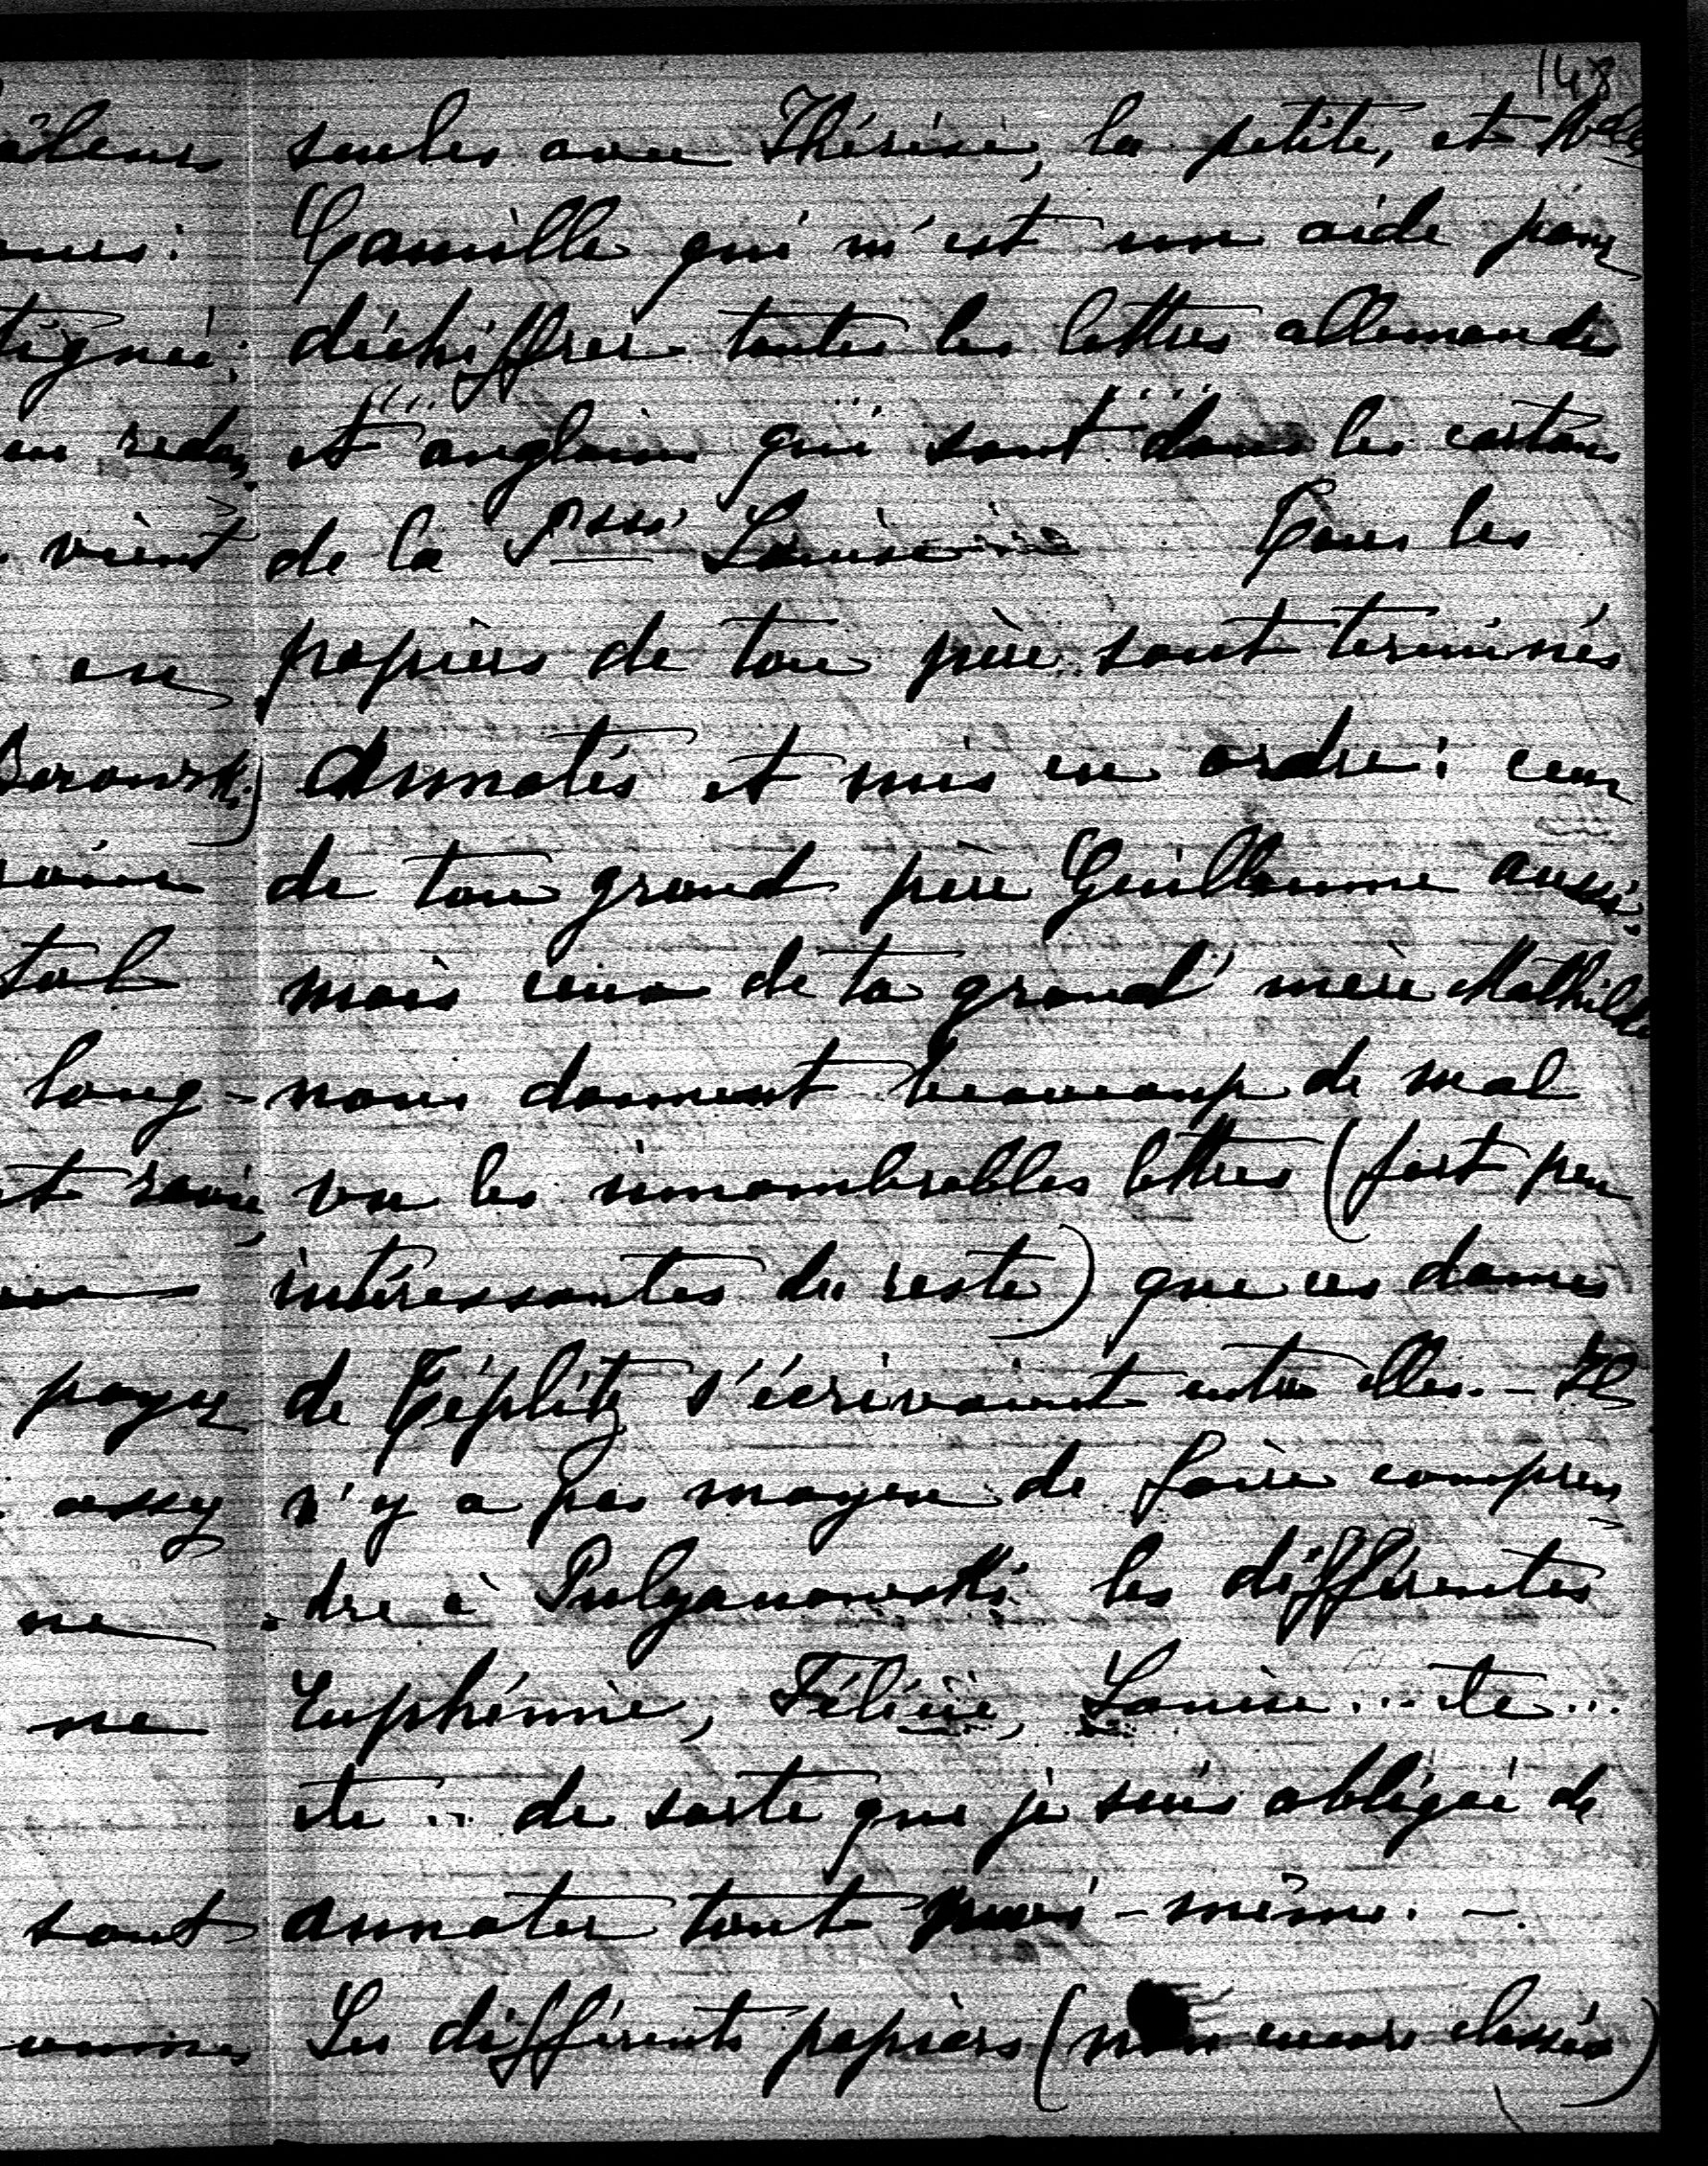 148
seules avec Thérèse, la petite, et Mlle
Camille qui m'est un aide pour
déchiffrer toutes les lettres allemandes
et anglaises qui sont dans les cartons
de la Psse Louise Tous les
papiers de ton père sont terminés
annotés et mis en ordre: ceux
de ton grand père Guillaume aussi;
mais ceux de ta grand' mère Mathilde
nous donnent beaucoup de mal
vu les innombrables lettres (fort peu
intéressantes du reste) que ces dames
de Téplitz s'écrivaient entre elles. - Il
n'y a pas moyen de faire compren
-dre à Pulyanowski les différentes
Euphémie, Félicie, Louise... etc...
etc... de sorte que je suis obligée de
annoter tout moi-même. -
Les différents papiers (non encore classés)
vient
en
Borowski)
long-
payer
assez
ne
ne
sont